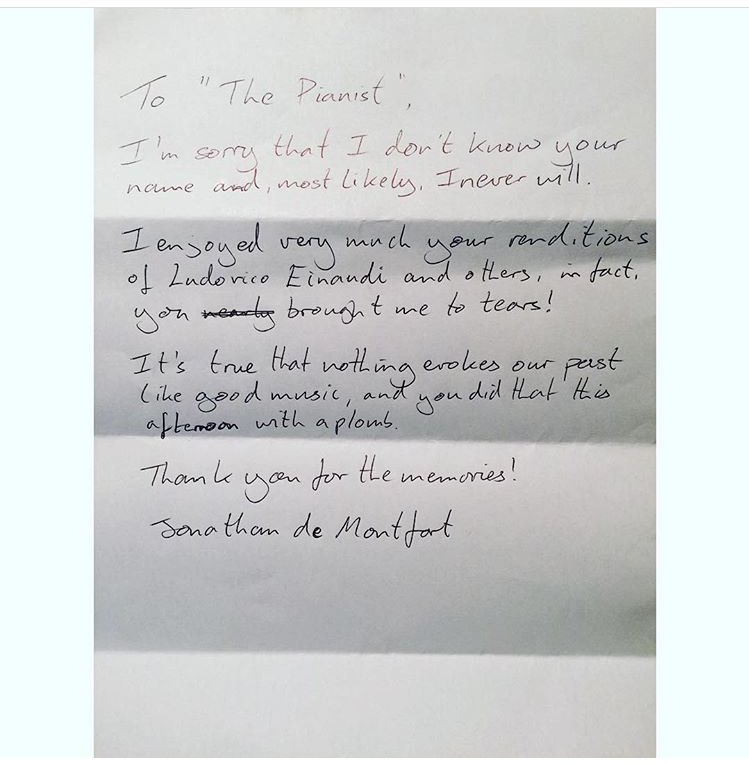 To "The Pianist",
I'm sorry that I don't know your
name and, most likely, I never will.
I enjoyed very much your renditions
of Ludovico Einaudi and others, in fact,
you nearly brought me to tears!
It's true that nothing evokes our past
like good music, and you did that this
afternoon with aplomb.
Thank you for the memories!
Jonathan de Montfort